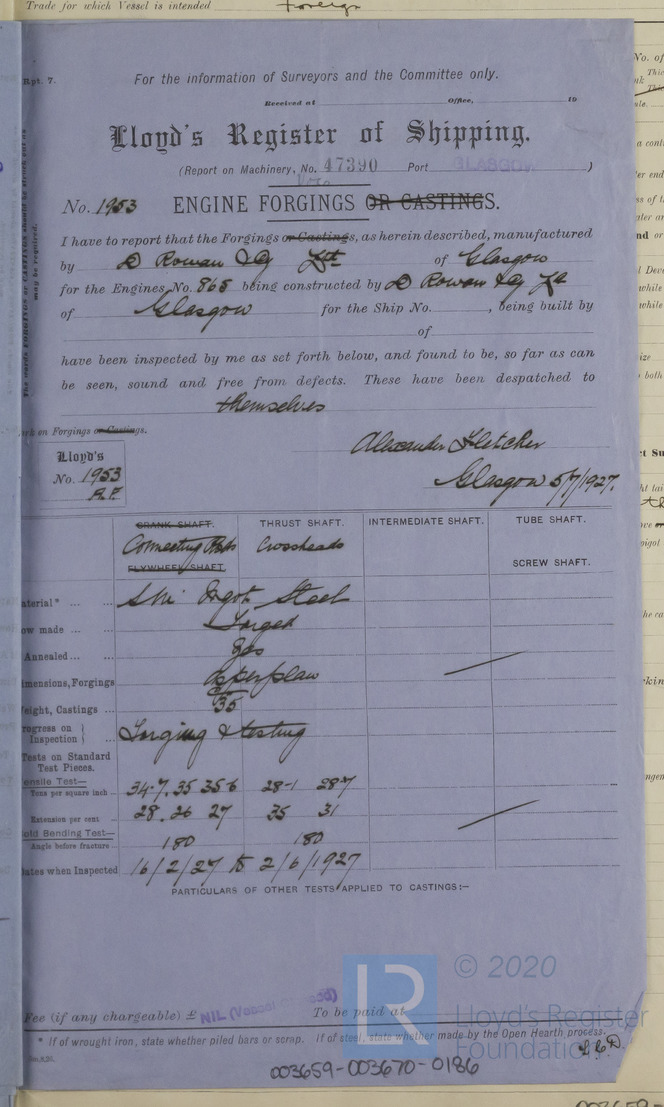 Trade for which Vessel is intended Foreign
Rpt. 7.
For the information of Surveyors and the Committee only.
Received at Office, 19
Lloyd's Register of Shipping.
(Report on Machinery, No. 47390 Port GLASGOW )
No. 1953 ENGINE FORGINGS OR CASTINGS.
I have to report that the Forgings or Castings, as herein described, manufactured
by D Rowan & Co Ltd of Glasgow
for the Engines No. 865 being constructed by D Rowan & Co Ld
of Glasgow for the Ship No. , being built by
of
have been inspected by me as set forth below, and found to be, so far as can
be seen, sound and free from defects. These have been despatched to
themselves
on Forgings or Castings.
Alexander Fletcher
Lloyd's
No. 1953
A.F.
Glasgow 5/7/1927.
CRANK SHAFT. THRUST SHAFT. INTERMEDIATE SHAFT. TUBE SHAFT.
Connecting Rods Crossheads
FLYWHEEL SHAFT SCREW SHAFT.
aterial* Ingot Steel
ow made Forged
Annealed Yes
imensions, Forgings as per plan
eight, Castings 35
rogress on Inspection } Forging & testing
Tests on Standard
Test Pieces.
ensile Test—
Tons per square inch 34.7. 35 35.6 28.1 28.7
Extension per cent. 28. 26 27 35 31
old Bending Test—
Angle before fracture 180 180
ates when Inspected 16/2/27 to 2/6/1927
PARTICULARS OF OTHER TESTS APPLIED TO CASTINGS:—
© 2020
Lloyd's Register
Foundation
Fee (if any chargeable) £ NIL (Vessel Classed) To be paid at
* If of wrought iron, state whether piled bars or scrap. If of steel, state whether made by the Open Hearth process.
003659-003670-0186